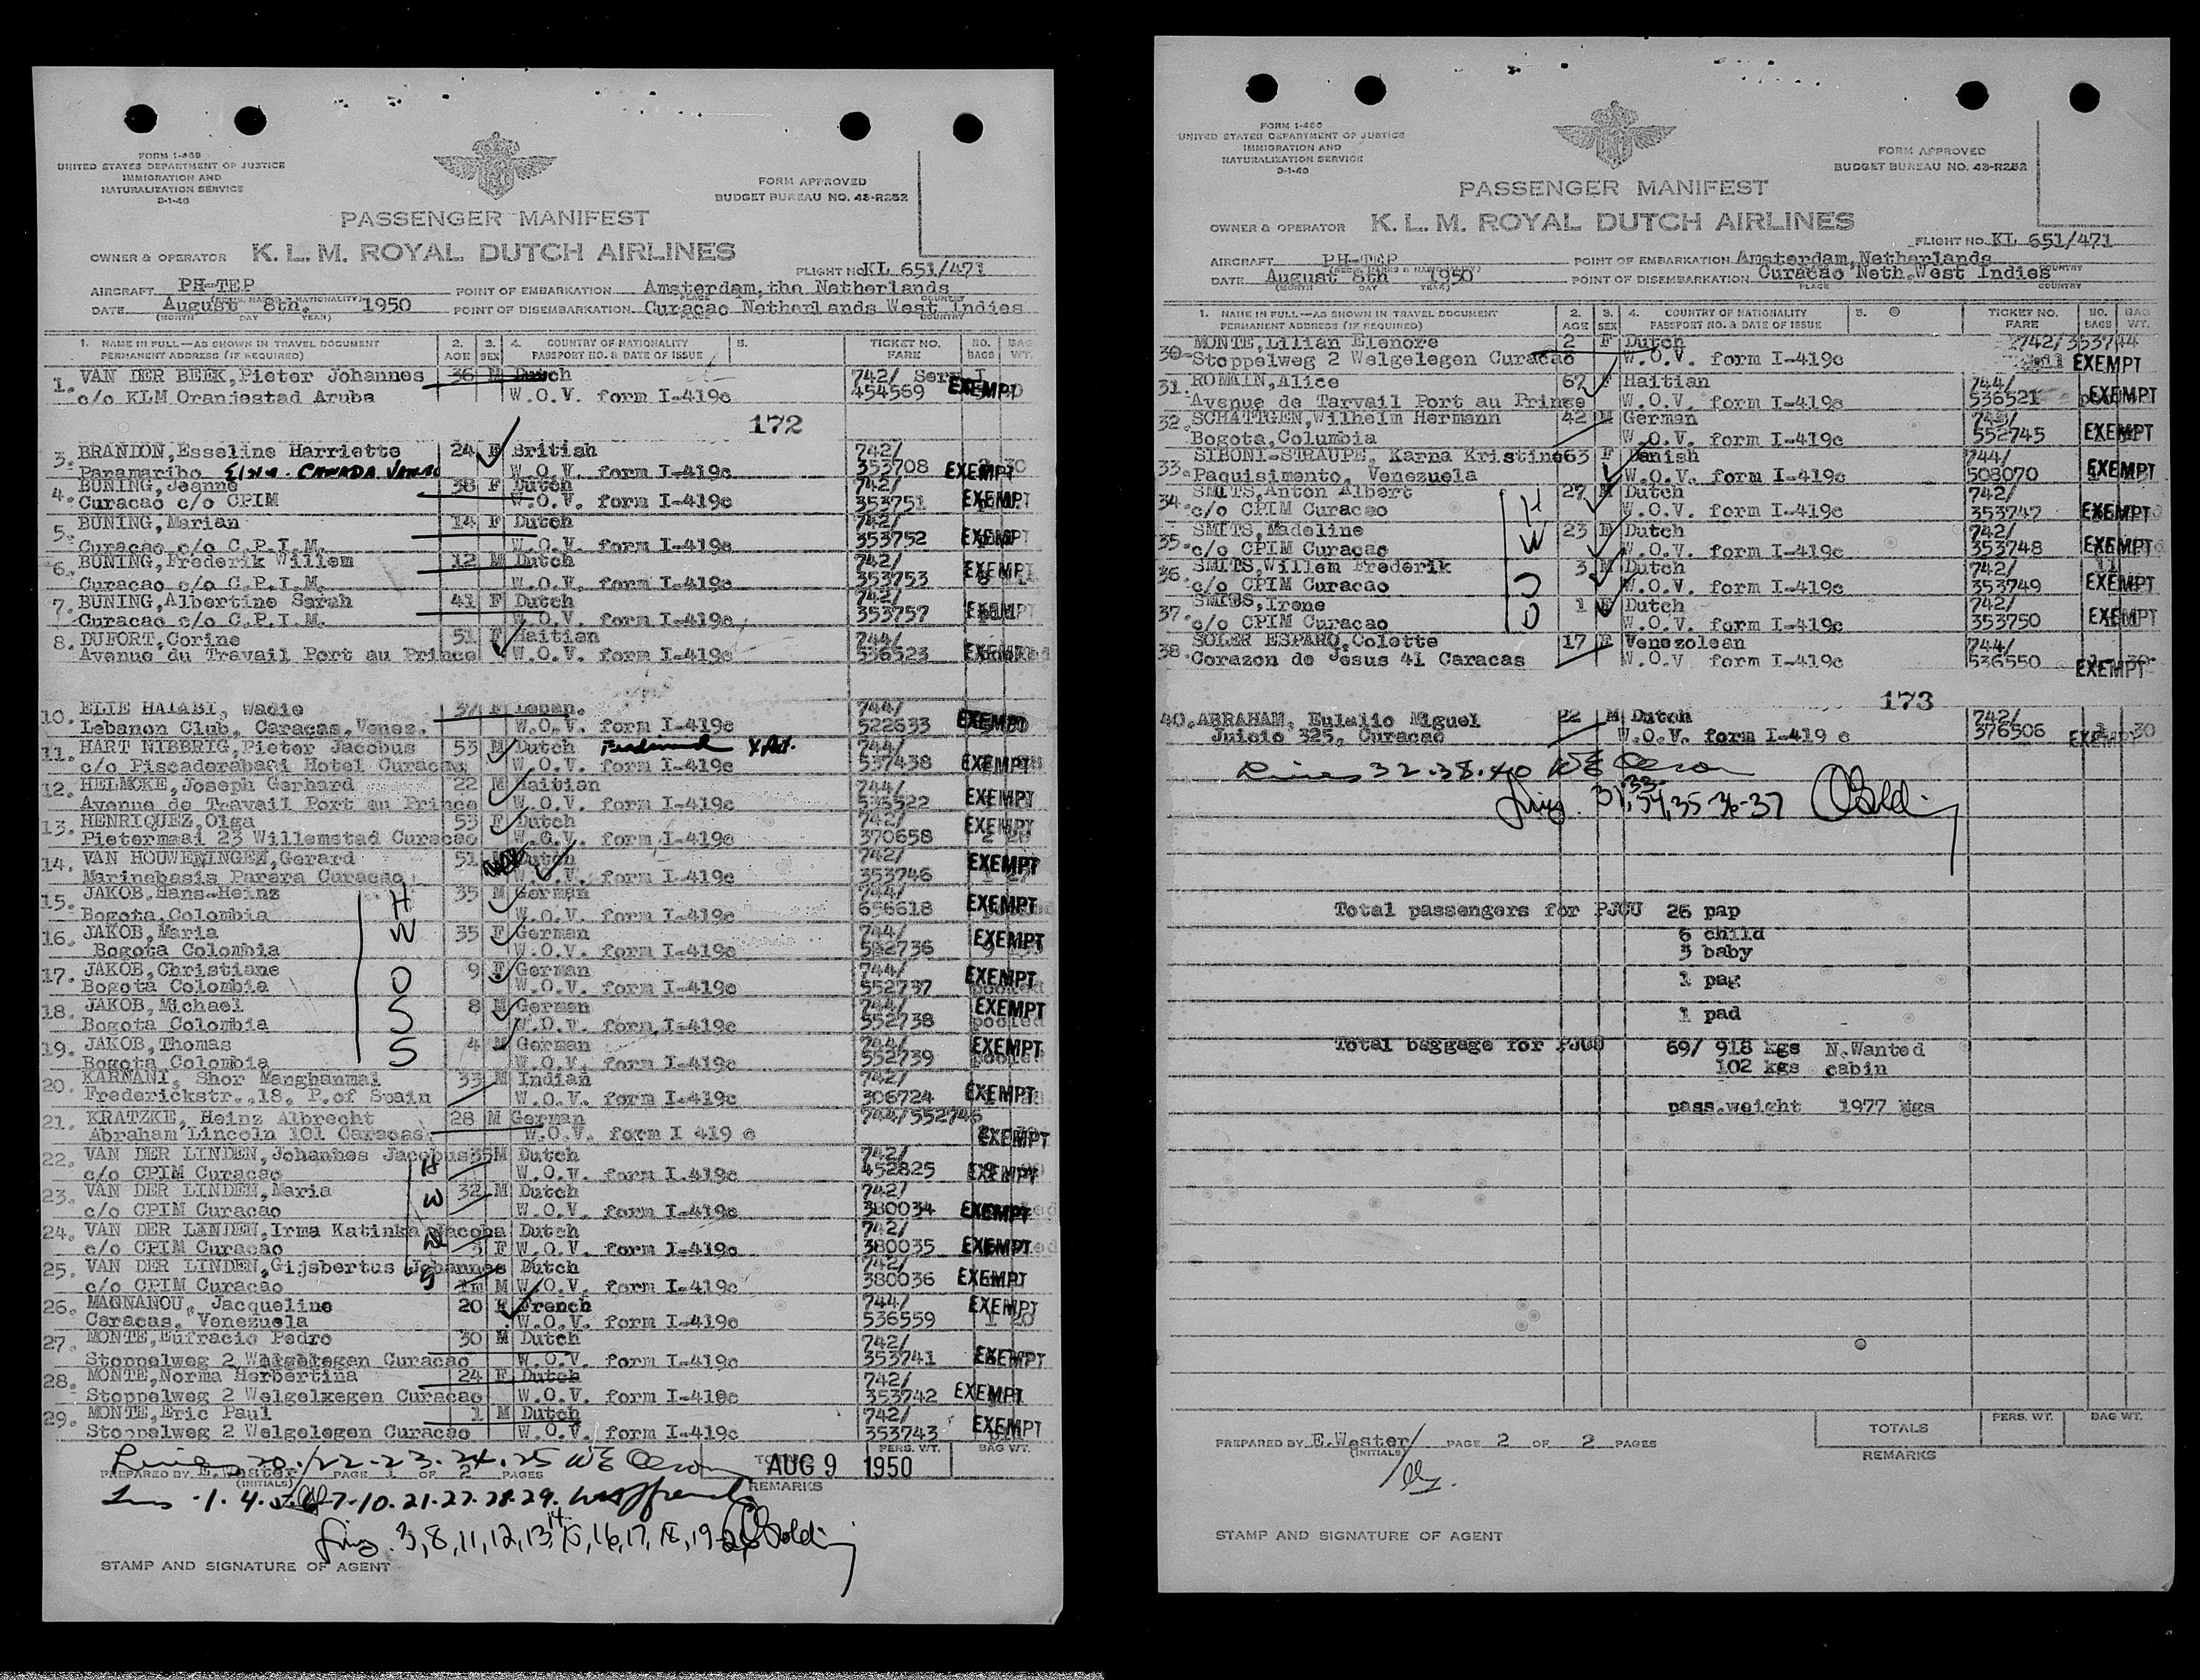 FORM I-466
UNITED STATES DEPARTMENT OF JUSTICE
IMMIGRATION AND
NATURALIZATION SERVICE
FORM APPROVED
BUDGET BUREAU NO. 43-R252
PASSENGER MANIFEST
OWNER & OPERATOR K. L. M. ROYAL DUTCH AIRLINES
FLIGHT NO. KL 651/471
AIRCRAFT PH-TEP POINT OF EMBARKATION Amsterdam,the Netherlands
DATE August 8th. 1950 POINT OF DISEMBARKATION Curacao Netherlands West Indies
(MONTH DAY YEAR) PLACE COUNTRY
1. NAME IN FULL—AS SHOWN IN TRAVEL DOCUMENT 2. 3. 4. COUNTRY OF NATIONALITY 5. TICKET NO. NO. BAG
PERMANENT ADDRESS (IF REQUIRED) AGE SEX PASSPORT NO. & DATE OF ISSUE FARE BAGS WT.
1. VAN DER BEEK,Pieter Johannes 36 M Dutch 742/
c/o KLM Oranjestad Aruba W.O.V. form I-419c 454569 EXEMPT
172
3. BRANDON,Esseline Harriette 24 F British 742/
Paramaribo W.O.V. form I-419c 353708 EXEMPT
4. BUNING,Jeanne 38 F Dutch 742/
Curacao c/o CPIM W.O.V. form I-419c 353751 EXEMPT
5. BUNING,Marian 14 F Dutch 742/
Curacao c/o C.P.I.M. W.O.V. form I-419c 353752 EXEMPT
6. BUNING,Frederik Willem 12 M Dutch 742/
Curacao c/o C.P.I.M. W.O.V. form I-419c 353753 EXEMPT
7. BUNING,Albertine Sarah 41 F Dutch 742/
Curacao c/o C.P.I.M. W.O.V. form I-419c 353757 EXEMPT
8. DUFORT,Corine 51 F Haitian 744/
Avenue du Travail Port au Prince W.O.V. form I-419c 536523 EXEMPT
10. ELIE HALABI, Wadie 37 F Leban. 744/
Lebanon Club, Caracas,Venez. W.O.V. form I-419c 522633 EXEMPT
11. HART NIBBRIG,Pieter Jacobus 53 M Dutch 744/
c/o Piscaderabaai Hotel Curacao W.O.V. form I-419c 537438 EXEMPT
12. HELMCKE,Joseph Gerhard 22 M Haitian 744/
Avenue de Travail Port au Prince W.O.V. form I-419c 536522 EXEMPT
13. HENRIQUEZ,Olga 53 F Dutch 742/
Pietermaai 23 Willemstad Curacao W.O.V. form I-419c 370658 EXEMPT
14. VAN HOUWENINGEN,Gerard 51 M Dutch 742/
Marinebasis Parera Curacao W.O.V. form I-419c 353746 EXEMPT
15. JAKOB,Hans-Heinz H 35 M German 744/
Bogota,Colombia W.O.V. form I-419c 656618 EXEMPT
16. JAKOB,Maria W 35 F German 744/
Bogota Colombia W.O.V. form I-419c 552736 EXEMPT
17. JAKOB,Christiane D 9 F German 744/
Bogota Colombia W.O.V. form I-419c 552737 EXEMPT
18. JAKOB,Michael S 8 M German 744/
Bogota Colombia W.O.V. form I-419c 552738 EXEMPT
19. JAKOB,Thomas S 4 M German 744/
Bogota Colombia W.O.V. form I-419c 552739 EXEMPT
20. KARNANI, Shor Manghanmal 33 M Indian 742/
Frederickstr.,18, P.of Spain W.O.V. form I-419c 306724 EXEMPT
21. KRATZKE, Heinz Albrecht 28 M German 744/552746
Abraham Lincoln 101 Caracas. W.O.V. form I 419 c EXEMPT
22. VAN DER LINDEN,Johannes Jacobus 35 M Dutch 742/
c/o CPIM Curacao H W.O.V. form I.419c 452825 EXEMPT
23. VAN DER LINDEN,Maria W 32 M Dutch 742/
c/o CPIM Curacao W.O.V. form I-419c 380034 EXEMPT
24. VAN DER LANDEN,Irma Katinka Jacoba Dutch 742/
c/o CPIM Curacao F W.O.V. form I-419c 380035 EXEMPT
25. VAN DER LINDEN,Gijsbertus Johannes Dutch 742/
c/o CPIM Curacao S M W.O.V. form I-419c 380036 EXEMPT
26. MAGNANOU, Jacqueline 20 F French 744/
Caracas, Venezuela W.O.V. form I-419c 536559 EXEMPT
27. MONTE,Eufracio Pedro 30 M Dutch 742/
Stoppelweg 2 Welgelegen Curacao W.O.V. form I-419c 353741 EXEMPT
28. MONTE,Norma Herbertina 24 F Dutch 742/
Stoppelweg 2 Welgelxegen Curacao W.O.V. form I-419c 353742 EXEMPT
29. MONTE,Eric Paul 1 M Dutch 742/
Stoppelweg 2 Welgelegen Curacao W.O.V. form I-419c 353743 EXEMPT
Lines 20./22-23.24.25 WE Olson
PERS. WT. BAG WT.
PREPARED BY E.Wester PAGE 1 OF 2 PAGES AUG 9 1950
(INITIALS) REMARKS
Lines 3,8,11,12,13,14,15,16,17,18,19
STAMP AND SIGNATURE OF AGENT
FORM I-466
UNITED STATES DEPARTMENT OF JUSTICE
IMMIGRATION AND
NATURALIZATION SERVICE
FORM APPROVED
BUDGET BUREAU NO. 43-R252
PASSENGER MANIFEST
OWNER & OPERATOR K. L. M. ROYAL DUTCH AIRLINES
FLIGHT NO. KL 651/471
AIRCRAFT PH-TEP POINT OF EMBARKATION Amsterdam,Netherlands
DATE August 8th 1950 POINT OF DISEMBARKATION Curacao Neth.West Indies
(MONTH DAY YEAR) PLACE COUNTRY
1. NAME IN FULL—AS SHOWN IN TRAVEL DOCUMENT 2. 3. 4. COUNTRY OF NATIONALITY 5. TICKET NO. NO. BAG
PERMANENT ADDRESS (IF REQUIRED) AGE SEX PASSPORT NO. & DATE OF ISSUE FARE BAGS WT.
30. MONTE,Lilian Elenore 2 F Dutch 742/353744
Stoppelweg 2 Welgelegen Curacao W.O.V. form I-419c EXEMPT
31. ROMAIN,Alice 67 F Haitian 744/
Avenue de Tarvail Port au Prince W.O.V. form I-419c 536521 EXEMPT
32. SCHATTGEN,Wilhelm Hermann 42 M German 744/
Bogota,Columbia W.O.V. form I-419c 552745 EXEMPT
33. SIBONI-STRAUPE, Karna Kristine 63 F Danish 744/
Paquisimento, Venezuela W.O.V. form I-419c 508070 EXEMPT
34. SMITS,Anton Albert H 27 M Dutch 742/
c/o CPIM Curacao W.O.V. form I-419c 353747 EXEMPT
35. SMITS,Madeline W 23 F Dutch 742/
c/o CPIM Curacao W.O.V. form I-419c 353748 EXEMPT
36. SMITS,Willem Frederik 3 M Dutch 742/
c/o CPIM Curacao W.O.V. form I-419c 353749 EXEMPT
37. SMITS,Irene D 1 F Dutch 742/
c/o CPIM Curacao W.O.V. form I-419c 353750 EXEMPT
38. SOLER ESPARQ,Colette 17 F Venezolean 744/
Corazon de Jesus 41 Caracas W.O.V. form I-419c 536550 EXEMPT
173
40. ABRAHAM, Eulalio Miguel 22 M Dutch 742/
Juicio 325, Curacao W.O.V. form I-419 c 376506 EXEMPT
Lines 32.38.40 WE Olson
Lines 31,33,34,35-36-37
Total passengers for PJCU 26 pap
6 child
3 baby
1 pag
1 pad
Total baggage for PJCU 69/ 918 kgs N.Wanted
102 kgs cabin
pass.weight 1977 kgs
PERS. WT. BAG WT.
TOTALS
PREPARED BY E.Wester PAGE 2 OF 2 PAGES
(INITIALS) REMARKS
STAMP AND SIGNATURE OF AGENT